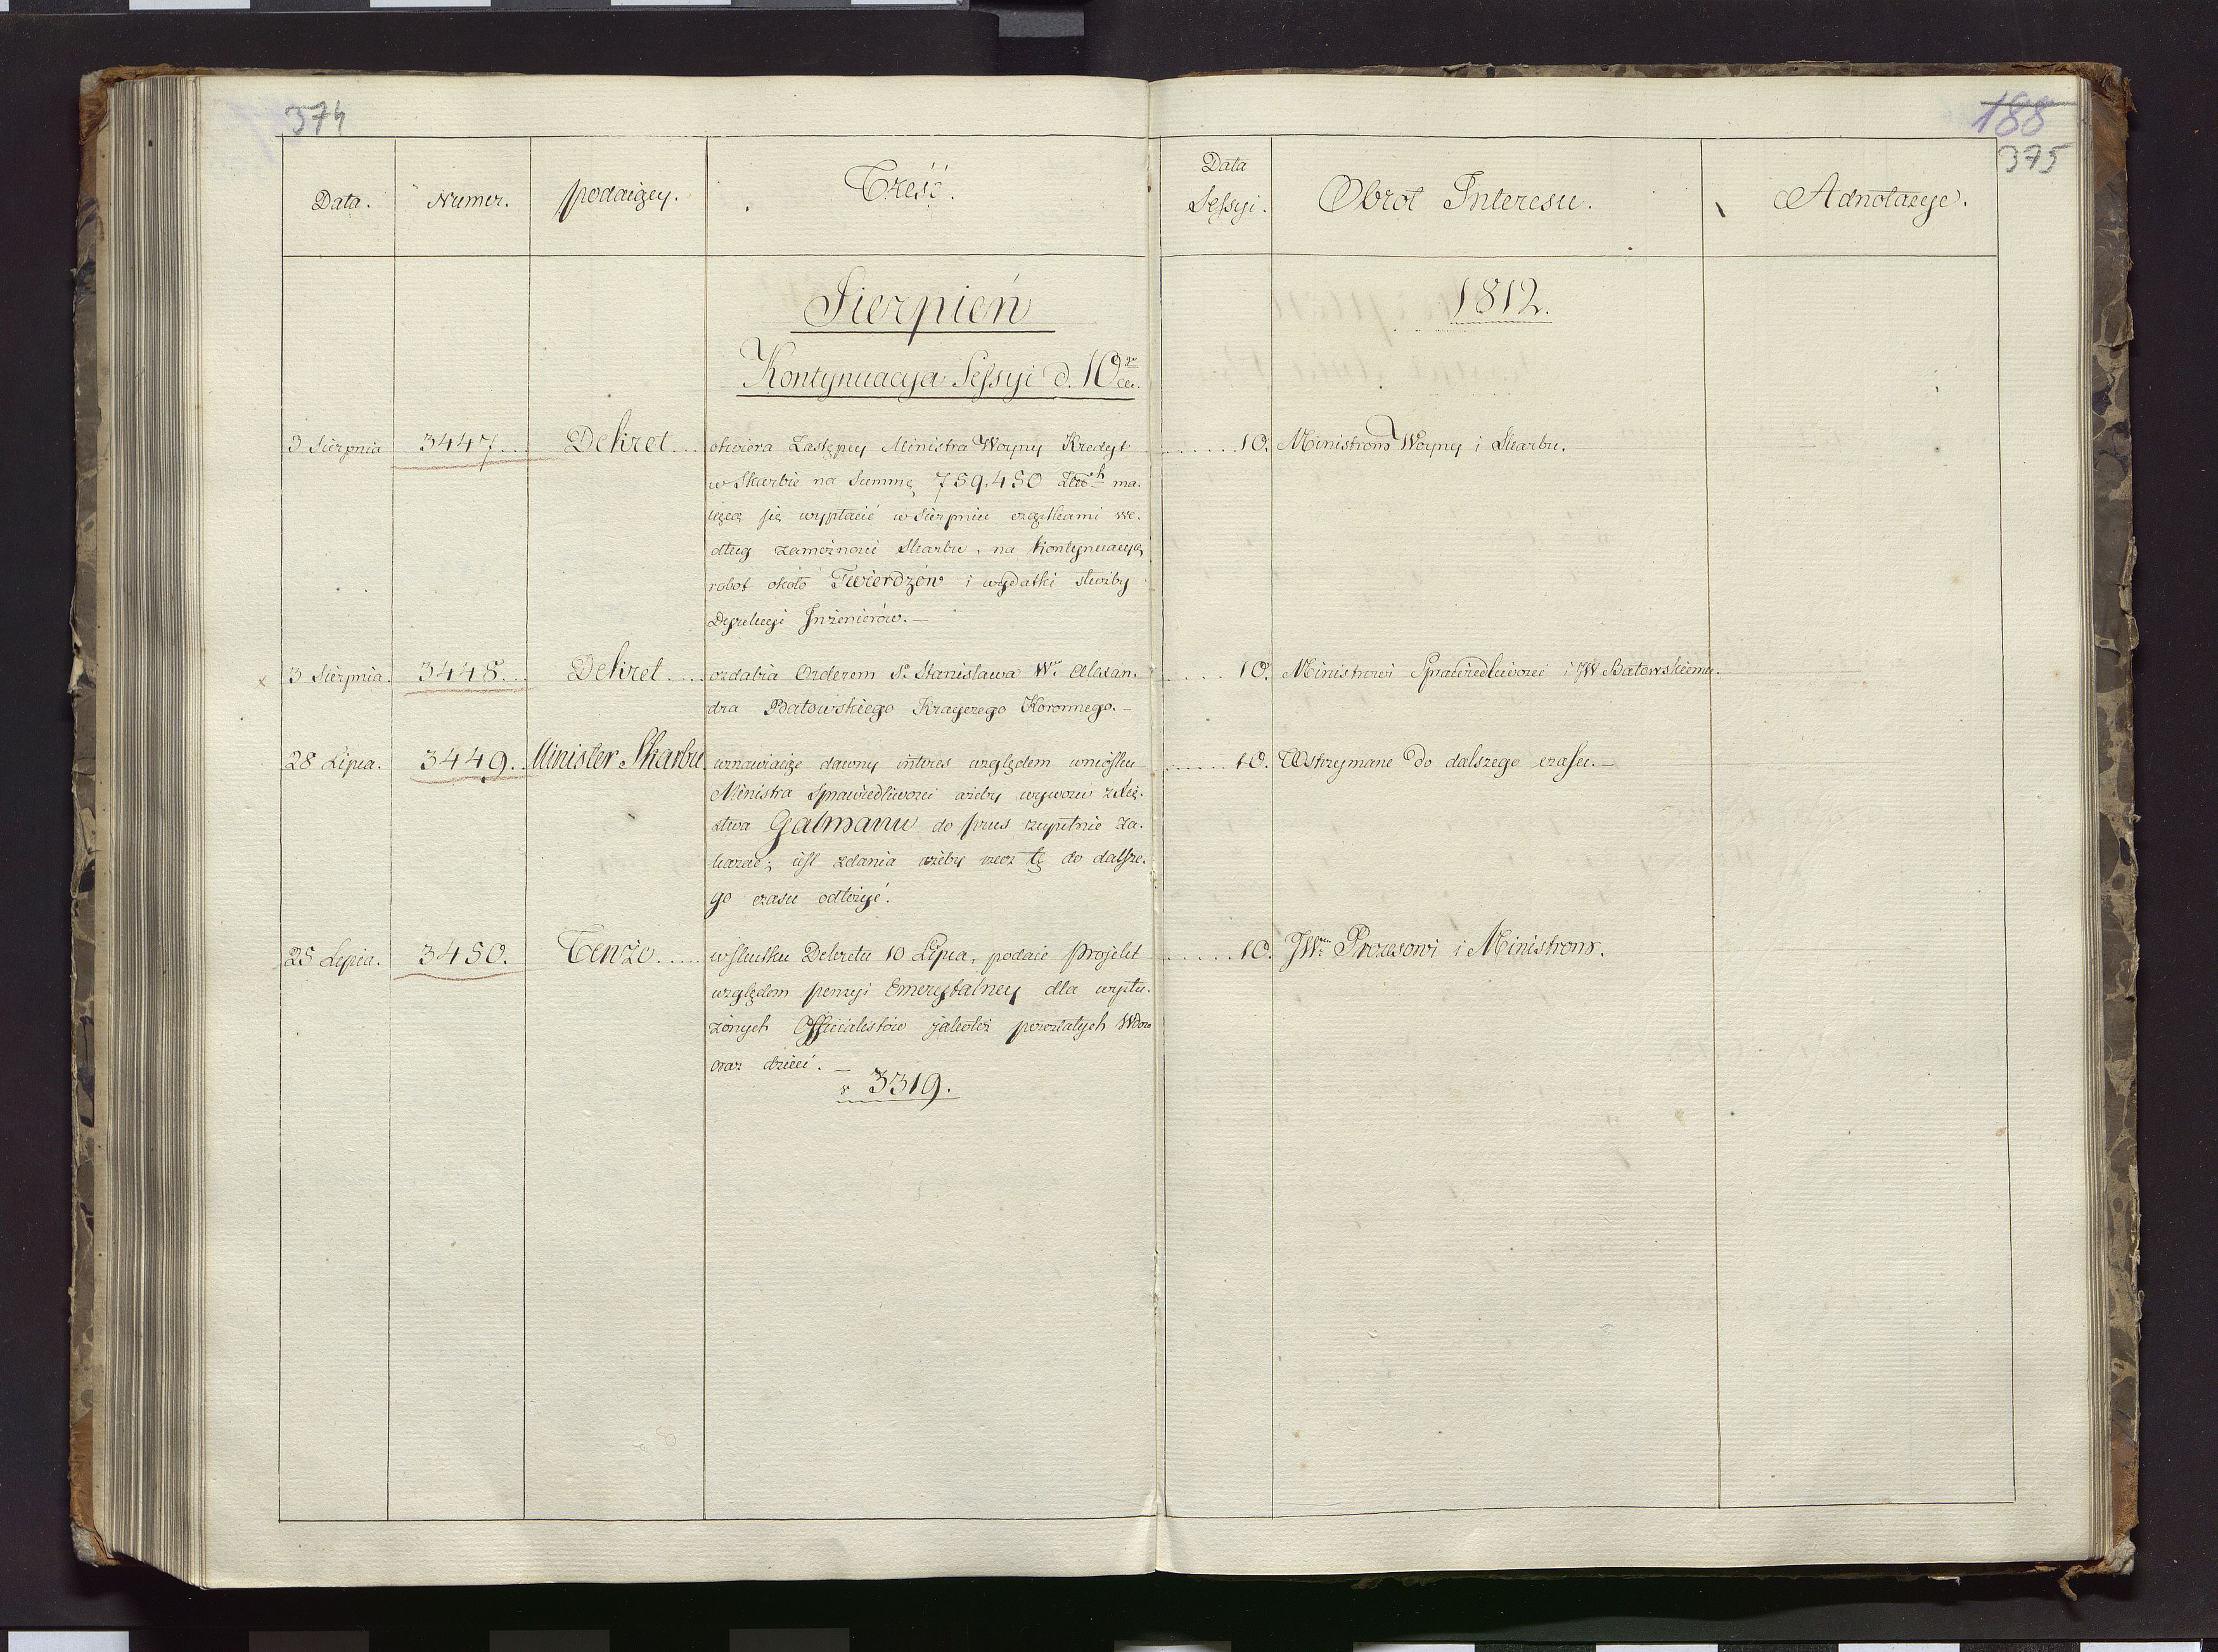 374
188
375
Data. Numer. podaiący. Treść. Data Sessyi. Obrot Interesu. Adnotacye.
Sierpień 1812.
Kontynuacya Sessyi d. 10
3 Sierpnia 3447. Dekret otwiera Zastępcy Ministra Woyny Kredyt 10. Ministrom Woyny i Skarbu.
w Skarbie na Summę 759,450 Złotch ma-
iącą się wypłacić w Sierpniu cząstkami we-
dług zamożności Skarbu, na kontynuacyą
robot około Twierdzów i wydatki służby
Dyrekcyi Inżenierów.—
3 Sierpnia. 3448. Dekret ozdabia Orderem S. Stanisława W. Alexan- 10. Ministrowi Sprawiedliwości i JW Batowskiemu.
dra Batowskiego Krayczego Koronnego.—
28 Lipca. 3449. Minister Skarbu wznawiaiąc dawny interes względem wniosku 10. Wstrzymane do dalszego czasu.—
Ministra Sprawiedliwości ażeby wywozu z Xię-
stwa Galmanu do Prus zupełnie za-
kazać; iest zdania ażeby rzecz tę do dalsze-
go czasu odłożyć.
25 Lipca. 3450. Tenże w skutku Dekretu 10 Lipca, podaie Projekt 10. JW. Prezesowi i Ministrom.
względem pensyi Emerytalney dla wysłu-
żonych Officialistów jakoteż pozostałych Wdow
oraz dzieci.—
3319.